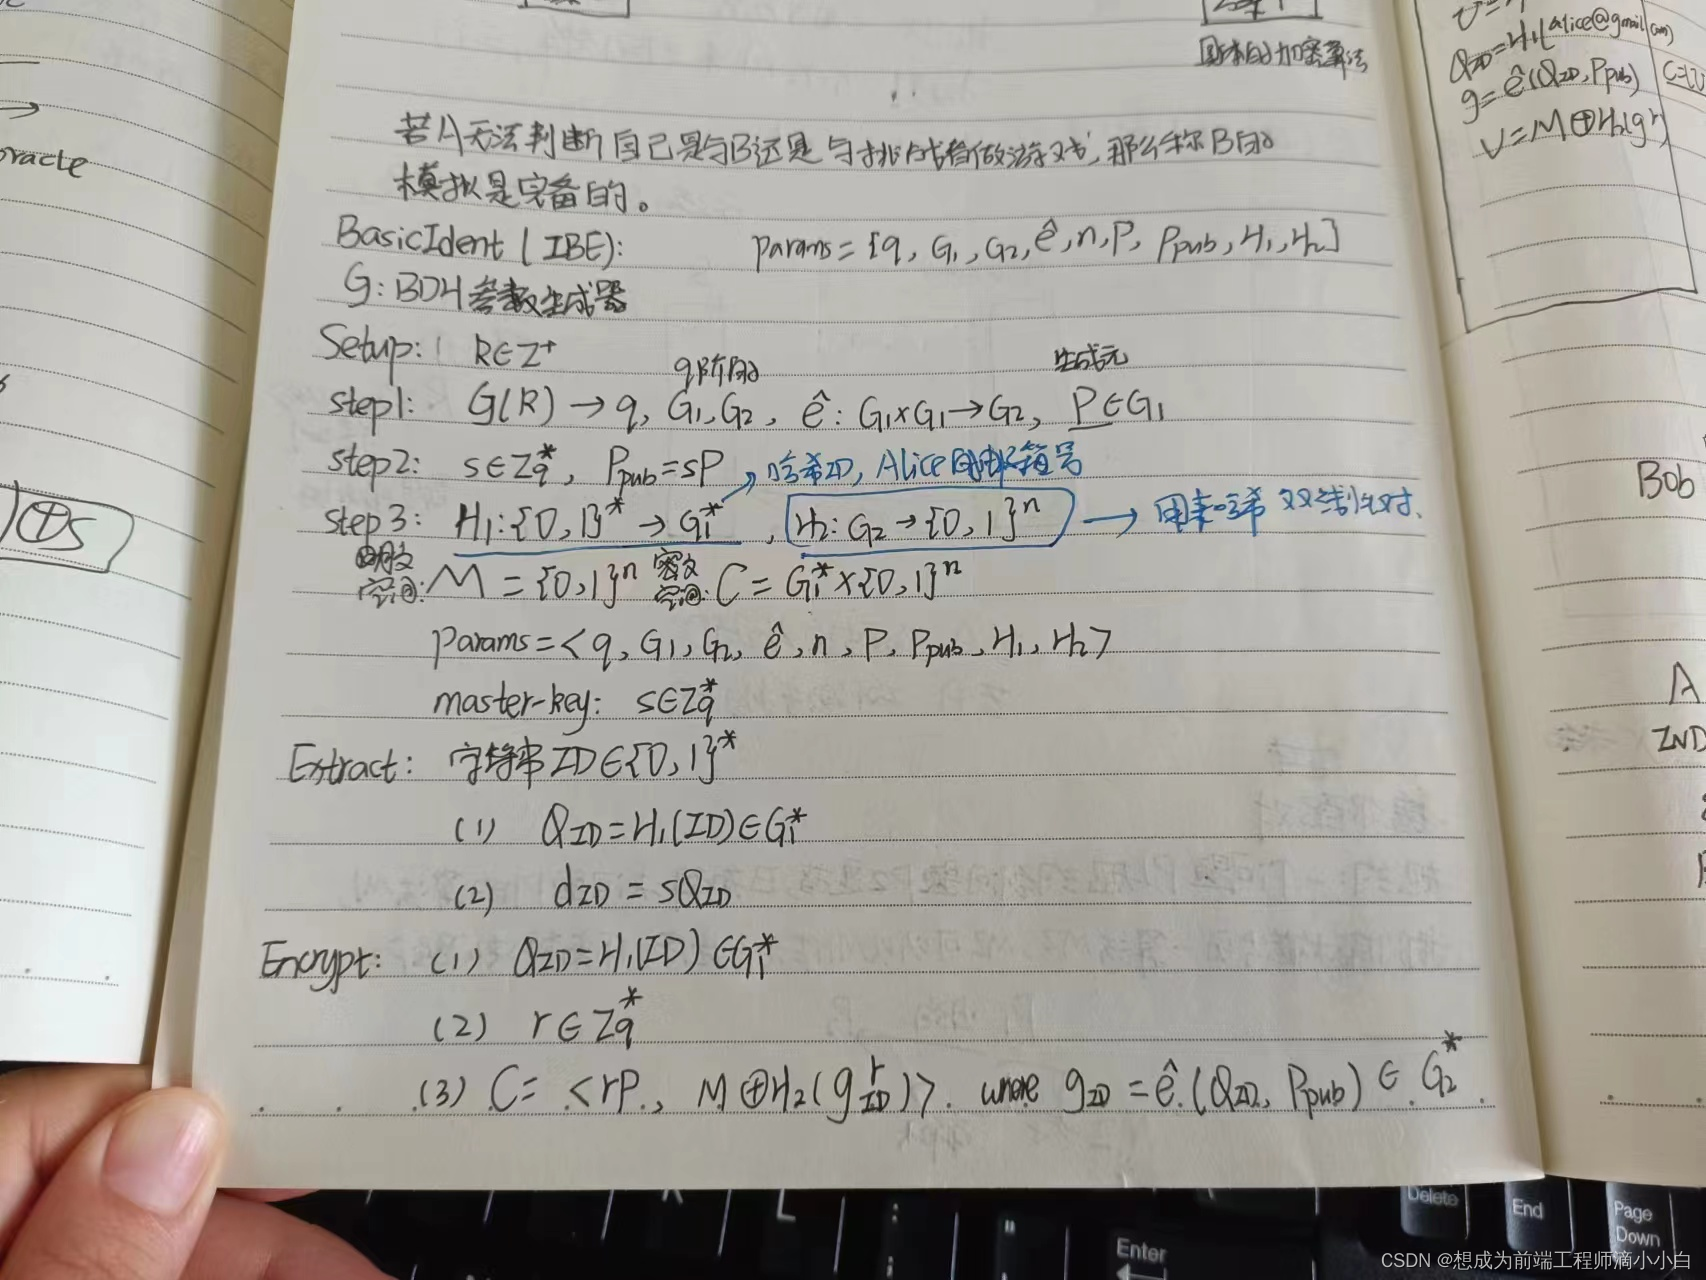 oracle
)⊕S
困难的加密算法
若A无法判断自己是与B还是与挑战者做游戏,那么称B的
模拟是完备的。
BasicIdent (IBE): params = {q, G₁, G₂, ê, n, P, Ppub, H₁, H₂}
G: BDH参数生成器
Setup: R∈Z⁺
q阶的 生成元
step1: G(R) → q, G₁, G₂, ê: G₁×G₁→G₂, P∈G₁
step2: s∈Zq*, Ppub=sP → 哈希ID, Alice的邮箱号
step3: H₁:{0,1}* → G₁*, H₂: G₂→{0,1}ⁿ → 用来哈希 双线性对.
明文空间: M = {0,1}ⁿ 密文空间: C = G₁*×{0,1}ⁿ
params=<q, G₁, G₂, ê, n, P, Ppub, H₁, H₂>
master-key: s∈Zq*
Extract: 字符串ID∈{0,1}*
(1) QID=H₁(ID)∈G₁*
(2) dID = sQID
Encrypt: (1) QID=H₁(ID)∈G₁*
(2) r∈Zq*
(3) C= <rP, M⊕H₂(gIDʳ)>. where gID = ê(QID, Ppub) ∈ G₂*
QID=H₁(alice@gmail.com)
g=ê(QID,Ppub)
V=M⊕H₂(gʳ)
Bob
A
IND
Delete
End
Page
Down
L
:
;
"
Enter
CSDN @想成为前端工程师滴小小白